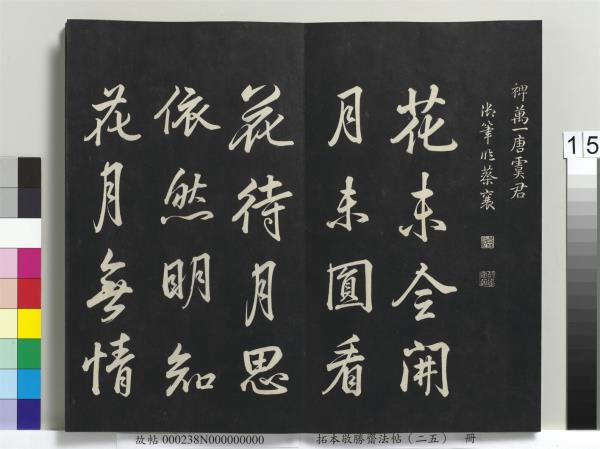 裨萬一唐虞君
御筆臨蔡襄
花未全開
月未圓看
花待月思
依然明知
花月無情
15
故帖 000238N000000000 拓本敬勝齋法帖（二五） 冊